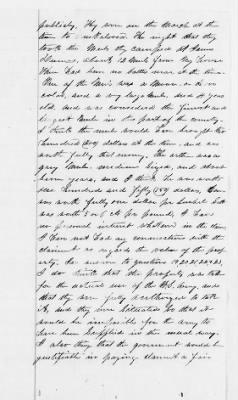 publicly. They were on the March at the
time to The night that they
took the Mules they camped at James
about 12 Miles from my house
There had been no battle near at the time.
One of the Mules was a in
color, and a very large mule, and 4 years
old, and was considered the finest and
largest mule in this part of the county.
I think the mule would have brought two
hundred dollars at the time, and was
worth fully that money. The other was a
gray Mule, medium size, and about
years, and I think he was worth
one hundred and fifty (150) dollars. Corn
was worth fully one dollar per bushel
was worth 5 or 6 cts per pound. I have
no personal interest whatever in the claim
I have not had any connection with the
claimant as regards the value of the property.
In answer to question 19.20.21.22.23.
I do think that the property was taken
for the actual use of the U.S. Army, and
that they were fully authorized to take
it, and they were so situated that it
would be impossible for the Army to
have been supplied in the usual way.
I also think that the government would be
justifiable in paying claimant a fair